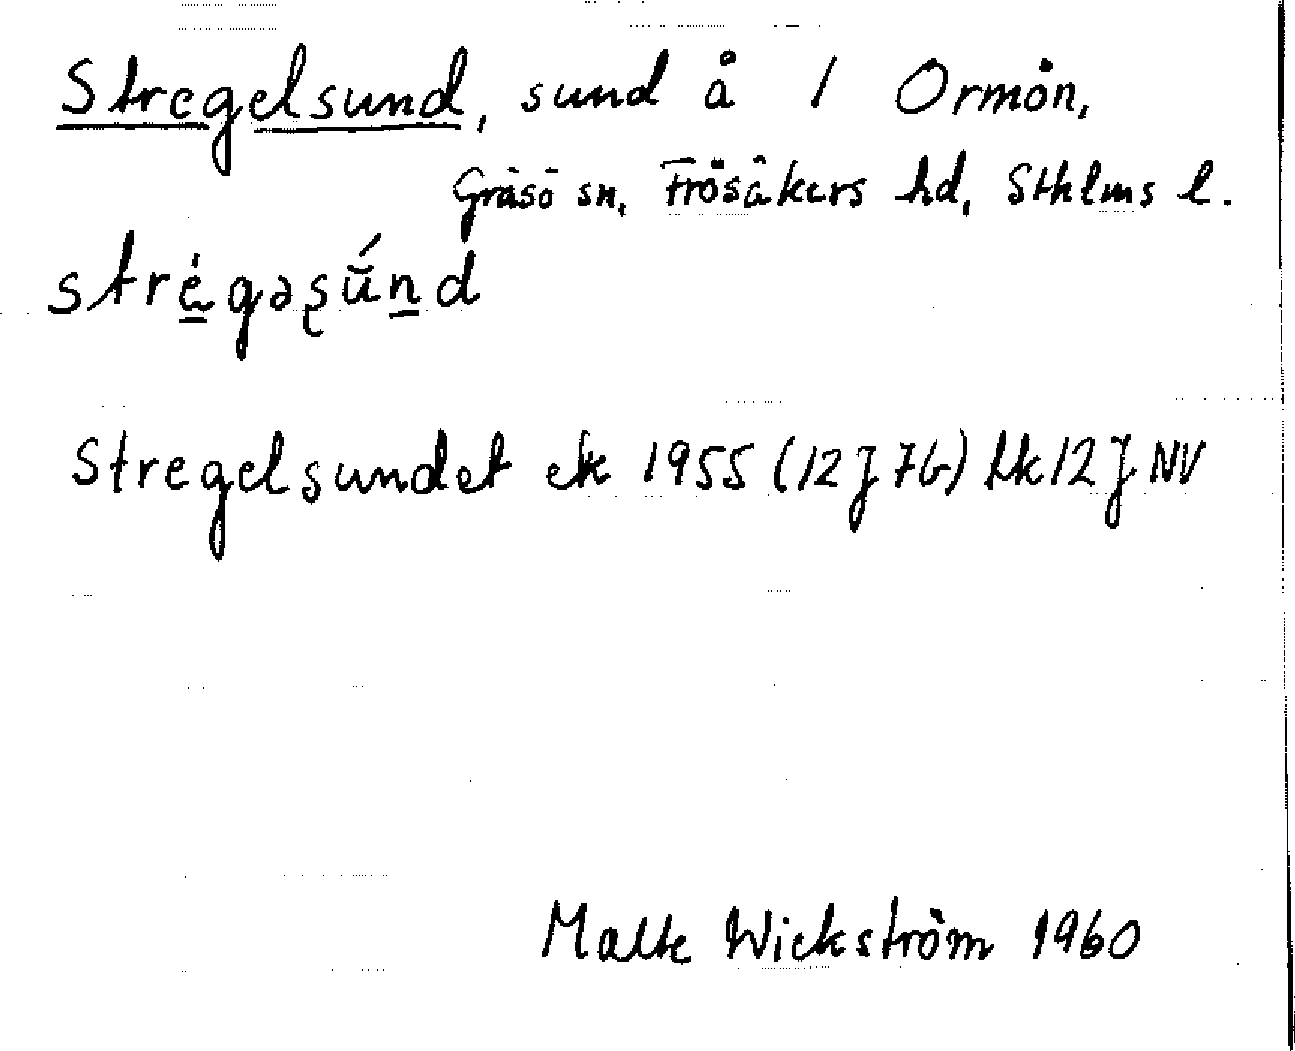 Stregelsund, sund å / Ormön,
Gräsö sn, Frösåkers hd, Sthlms l.
stre̱gəʂǘṉd
Stregelsundet ek 1955 (12J 7b) Lk 12J NV
Malte Wickström 1960